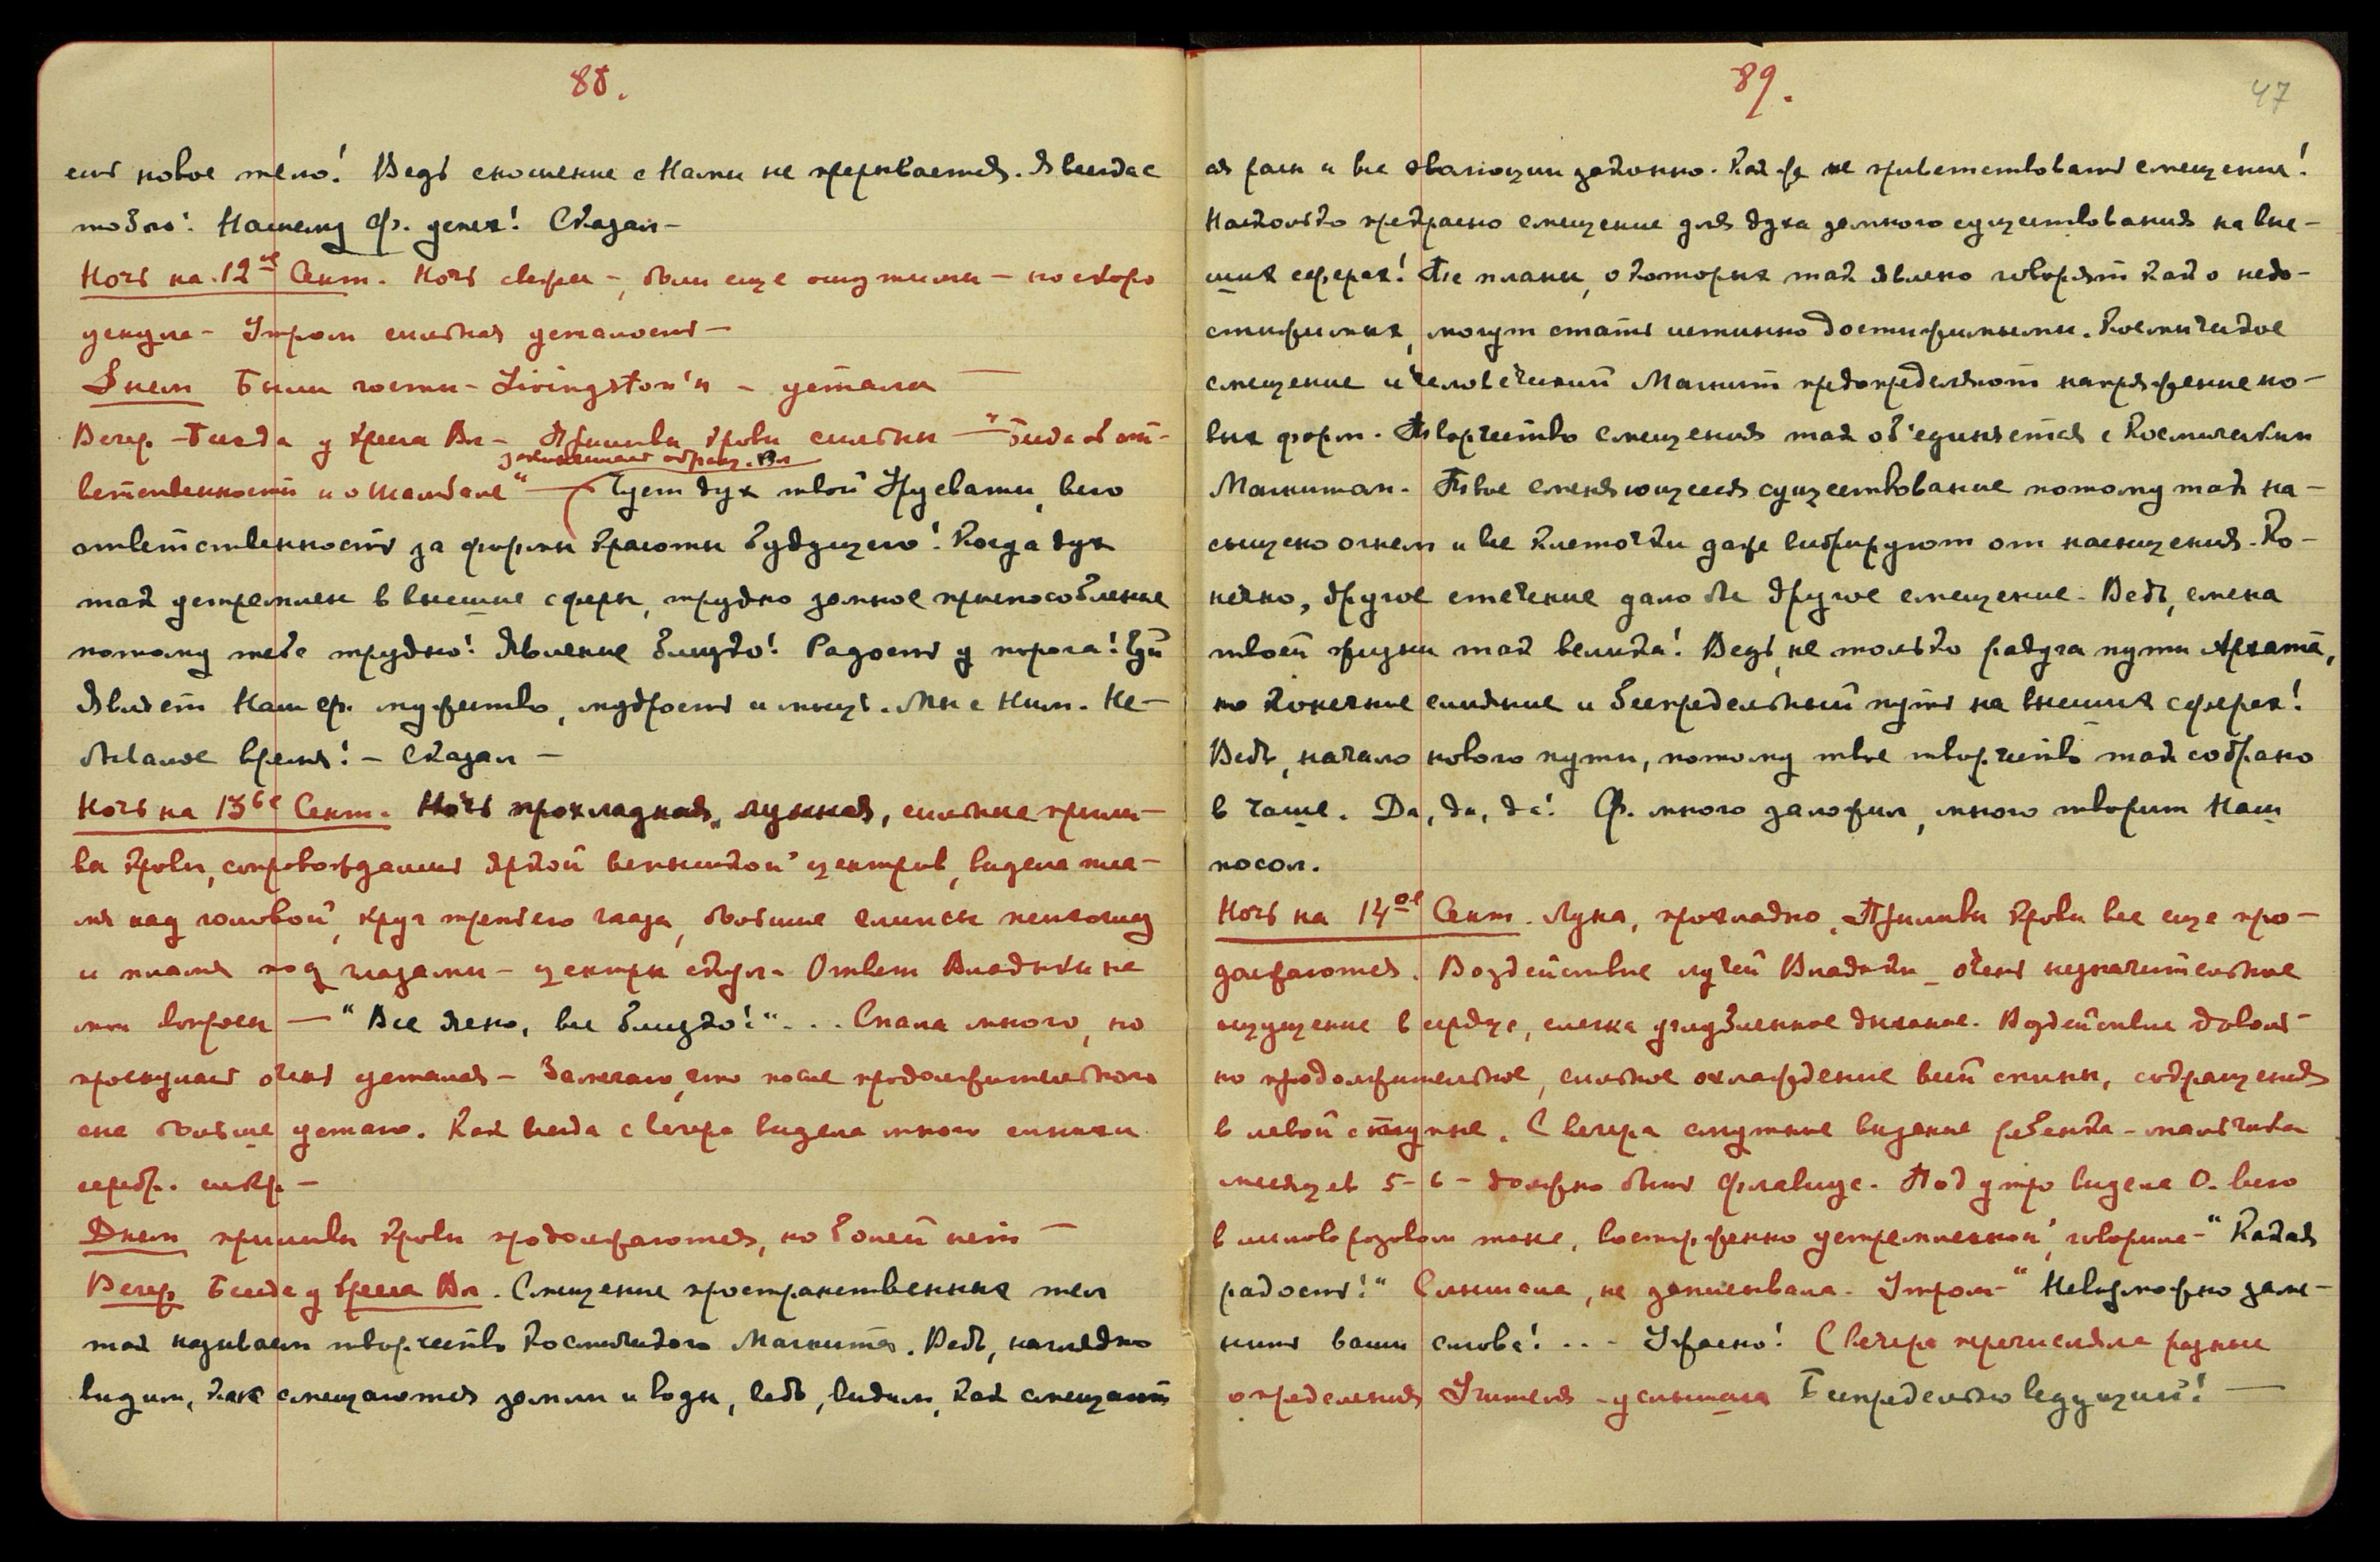 88.
ешь новое тело! Ведь сношение с Нами не прерывается. Я всегда с
тобою! Нашему Ф. успех! Сказал —
Ночь на 12ое Сент. Ночь свежа —, были еще ощутимы — но скоро
уснула — Утром сильная усталость —
Днем Были гости — Livingston'ы — устала —
Вечер — Беседа у кресла Вл — Приливы крови сильны — "Беседа об от-
закашлялась образ. Вл
ветственности и о Шамбале" — Чует дух твой Урусвати, всю
ответственность за формы красоты будущего! Когда дух
так устремлен в высшие сферы, трудно земное приспособление
потому тебе трудно! Явление близко! Радость у порога!
Являет Наш ф. мужество, мудрость и мощь. Мы с Ним. Не-
бывалое время! — Сказал —
Ночь на 13ое Сент. Ночь прохладная, лунная, сильные прили-
вы крови, сопровождались яркой вспышкой центров, видела пла-
мя над головой, круг третьего глаза, большие
и пламя под глазами — центры скул. Ответ Владыки на
мои вопросы — "Все ясно, все близко!" ... Спала много, но
проснулась очень усталая — Замечаю, что после продолжительного
сна больше устаю. Как всегда с вечера видела много синих и
серебр. искр —
Днем приливы крови продолжаются, но болей нет —
Вечер Беседа у кресла Вл. Смещение пространственных тел
так называем творчеством Космического Магнита. Ведь, наглядно
видим, как смещаются земли и воды, ведь, видим, как смещают
89.
47
ся расы и все эволюции законно. Как же не приветствовать смещение!
Насколько прекрасно смещение для духа земного существования на выс-
ших сферах! Те планы, о которых так явлено говорят как о недо-
стижимых, могут стать истинно достижимыми. Космическое
смещение и человеческий Магнит предопределяют напряжение но-
вых форм. Творчество смещения так объединяется с Космическим
Магнитом. Твое сменяющееся существование потому так на-
сыщено огнем и все клеточки даже вибрируют от насыщения. Ко-
нечно, другое стечение дало бы другое смещение. Ведь, смена
твоей жизни так велика! Ведь, не только радуга пути Архата,
но конечное слияние и беспредельный путь на высших сферах!
Ведь, начало нового пути, потому твое творчество так собрано
в чаше. Да, да, да! Ф. много заложил, много творит Наш
посол.
Ночь на 14ое Сент. Луна, прохладно. Приливы крови все еще про-
должаются. Воздействие лучей Владыки — очень незначительное
ощущение в сердце, слегка углубленное дыхание. Воздействие доволь-
но продолжительное, сильное охлаждение всей спины, сокращения
в левой ступне. С вечера смутное видение ребенка — мальчика
месяцев 5–6 — должно быть Флавиус. Под утро видела О. всю
в лилово розовом тоне, восторженно устремленной, говорила — "Какая
радость!" Слышала, не записывала. Утром — "Невозможно заме-
нить ваши слова! ... Ужасно! С вечера перечисляла разные
определения Учителя — услышала Беспредельно ведущий! —